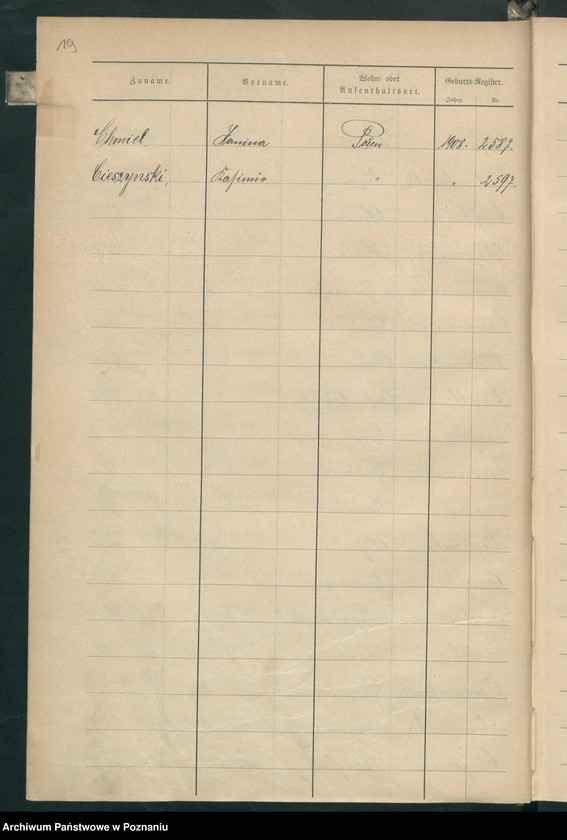 19
Zuname. Vorname. Wohn- oder Aufenthaltsort. Geburts-Register.
Jahrg. Nr.
Chmiel, Janina Posen 1908. 2587.
Cieszynski, Kasimir " " 2597.
Archiwum Państwowe w Poznaniu